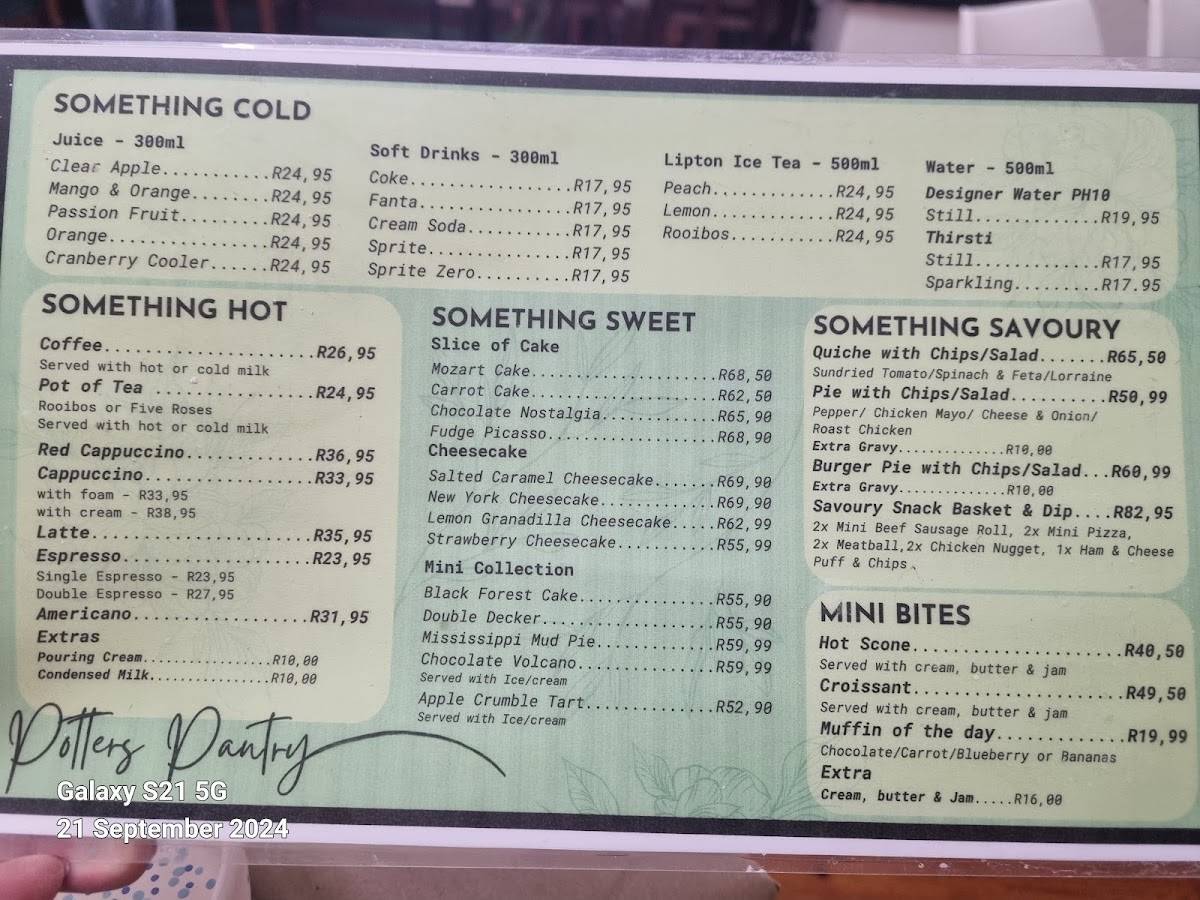 SOMETHING COLD
Juice - 300ml
Clear Apple...........R24,95
Mango & Orange........R24,95
Passion Fruit.........R24,95
Orange................R24,95
Cranberry Cooler......R24,95
Soft Drinks - 300ml
Coke.................R17,95
Fanta................R17,95
Cream Soda...........R17,95
Sprite...............R17,95
Sprite Zero..........R17,95
Lipton Ice Tea - 500ml
Peach.............R24,95
Lemon.............R24,95
Rooibos...........R24,95
Water - 500ml
Designer Water PH10
Still.............R19,95
Thirsti
Still.............R17,95
Sparkling.........R17.95
SOMETHING HOT
Coffee.....................R26,95
Served with hot or cold milk
Pot of Tea ................R24,95
Rooibos or Five Roses
Served with hot or cold milk
Red Cappuccino.............R36,95
Cappuccino.................R33,95
with foam - R33,95
with cream - R38,95
Latte......................R35,95
Espresso...................R23,95
Single Espresso - R23,95
Double Espresso - R27,95
Americano..................R31,95
Extras
Pouring Cream................R10,00
Condensed Milk...............R10,00
SOMETHING SWEET
Slice of Cake
Mozart Cake....................R68,50
Carrot Cake....................R62,50
Chocolate Nostalgia............R65,90
Fudge Picasso..................R68,90
Cheesecake
Salted Caramel Cheesecake......R69,90
New York Cheesecake............R69,90
Lemon Granadilla Cheesecake....R62,99
Strawberry Cheesecake..........R55,99
Mini Collection
Black Forest Cake..............R55,90
Double Decker..................R55,90
Mississippi Mud Pie............R59,99
Chocolate Volcano..............R59,99
Served with Ice/cream
Apple Crumble Tart.............R52,90
Served with Ice/cream
SOMETHING SAVOURY
Quiche with Chips/Salad.......R65,50
Sundried Tomato/Spinach & Feta/Lorraine
Pie with Chips/Salad..........R50,99
Pepper/ Chicken Mayo/ Cheese & Onion/
Roast Chicken
Extra Gravy.............R10,00
Burger Pie with Chips/Salad...R60,99
Extra Gravy.............R10,00
Savoury Snack Basket & Dip....R82,95
2x Mini Beef Sausage Roll, 2x Mini Pizza,
2x Meatball,2x Chicken Nugget, 1x Ham & Cheese
Puff & Chips.
MINI BITES
Hot Scone.....................R40,50
Served with cream, butter & jam
Croissant.....................R49,50
Served with cream, butter & jam
Muffin of the day.............R19,99
Chocolate/Carrot/Blueberry or Bananas
Extra
Cream, butter & Jam.....R16,00
Potters Pantry
Galaxy S21 5G
21 September 2024